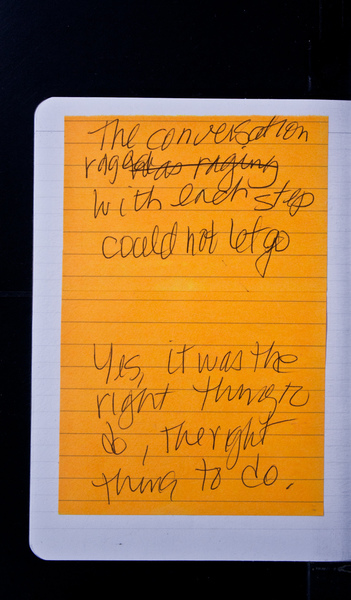 The conversation
raged was raging
with each step
could not let go
Yes, it was the
right thing to
do, the right
thing to do.